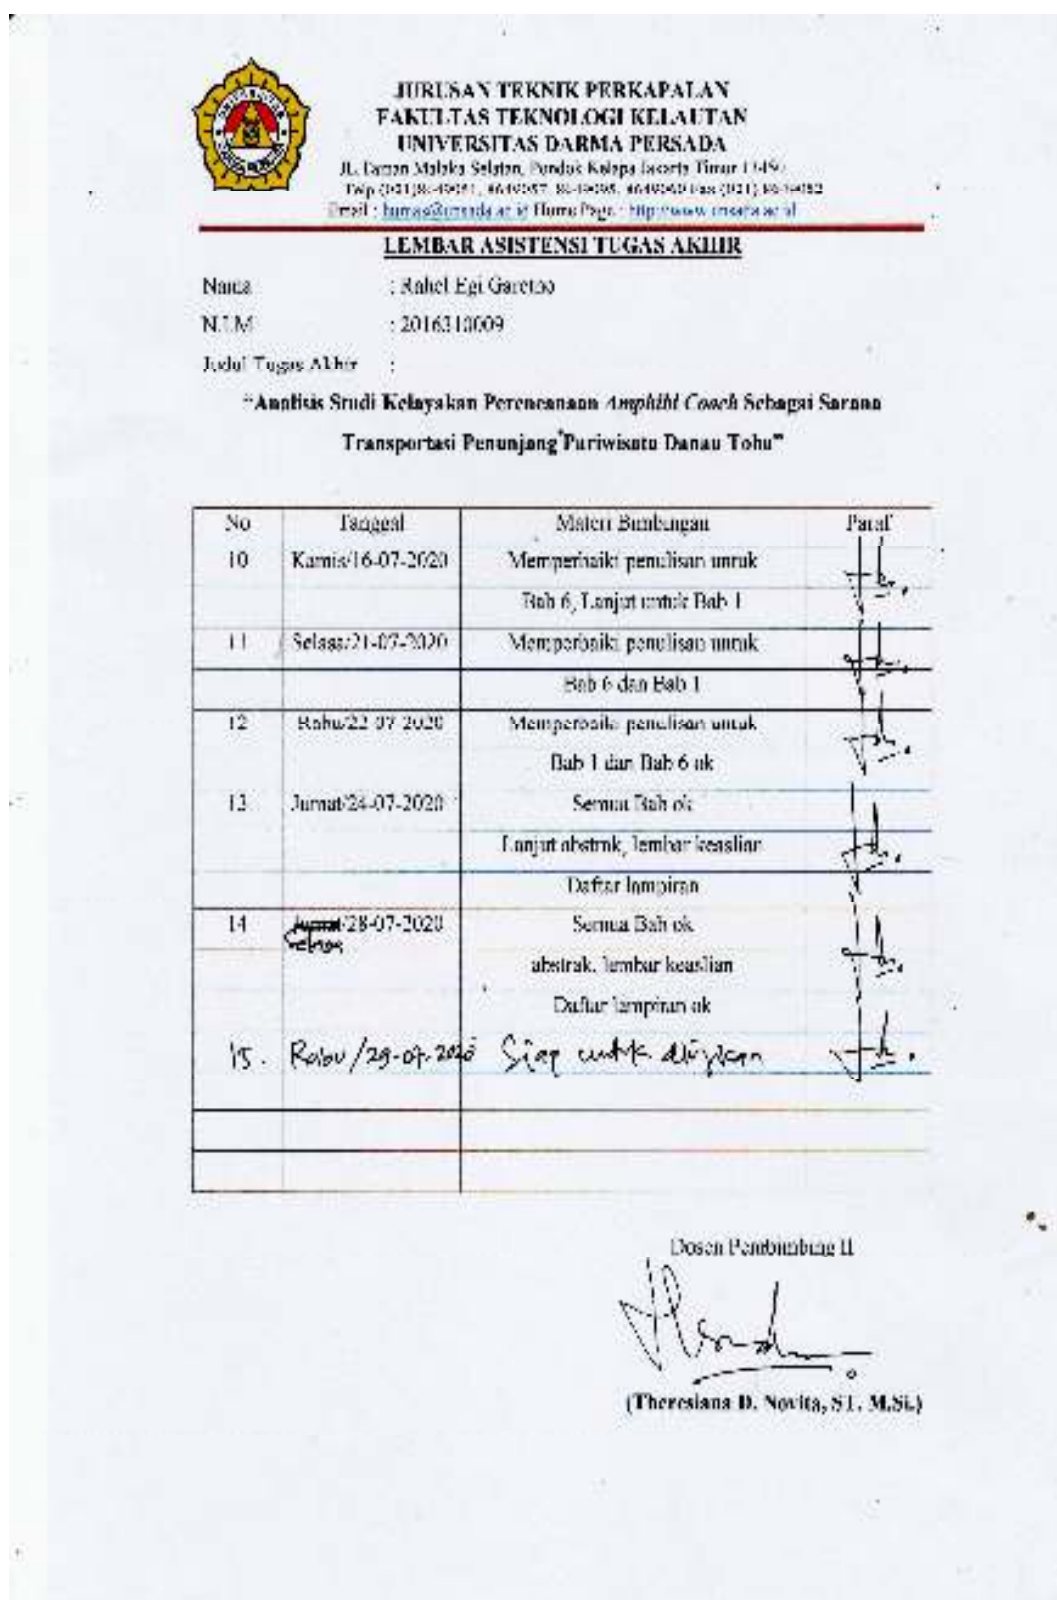 JURUSAN TEKNIK PERKAPALAN
FAKULTAS TEKNOLOGI KELAUTAN
UNIVERSITAS DARMA PERSADA
JL. Taman Malaka Selatan, Pondok Kelapa Jakarta Timur
Telp (021) Fax (021)
Email : humas@unsada.ac.id Home Page :
LEMBAR ASISTENSI TUGAS AKHIR
Nama : Rahel Egi
N.I.M : 2016310009
Judul Tugas Akhir :
"Analisis Studi Kelayakan Perencanaan Amphibi Coach Sebagai Sarana
Transportasi Penunjang Pariwisata Danau Toba"
No Tanggal Materi Bimbingan Paraf
10 Kamis/16-07-2020 Memperbaiki penulisan untuk
Bab 6, Lanjut untuk Bab 1
11 Selasa/21-07-2020 Memperbaiki penulisan untuk
Bab 6 dan Bab 1
12 Rabu/22-07-2020 Memperbaiki penulisan untuk
Bab 1 dan Bab 6 ok
13 Jumat/24-07-2020 Semua Bab ok
Lanjut abstrak, lembar keaslian
Daftar lampiran
14 Jumat/28-07-2020 Semua Bab ok
Selasa
abstrak, lembar keaslian
Daftar lampiran ok
15. Rabu/29-07-2020 Siap untuk diujikan
Dosen Pembimbing II
(Theresiana D. Novita, ST. M.Si.)